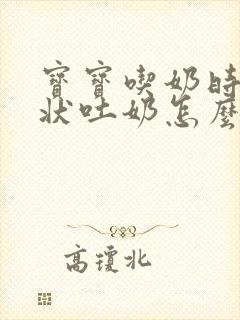 寶寶喫奶時
狀吐奶怎麼
高瓊北